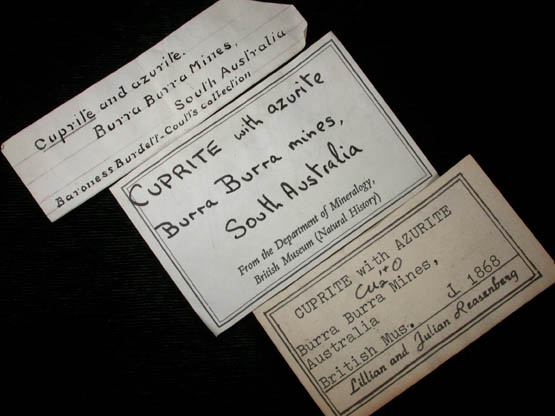 Cuprite and azurite.
Burra Burra Mines,
South Australia
Baroness Burdett-Coutts collection
CUPRITE with azurite
Burra Burra mines,
South Australia
From the Department of Mineralogy,
British Museum (Natural History)
CUPRITE with AZURITE
Cu₂⁺¹O
Burra Burra Mines,
Australia
British Mus. J 1868
Lillian and Julian Reasenberg